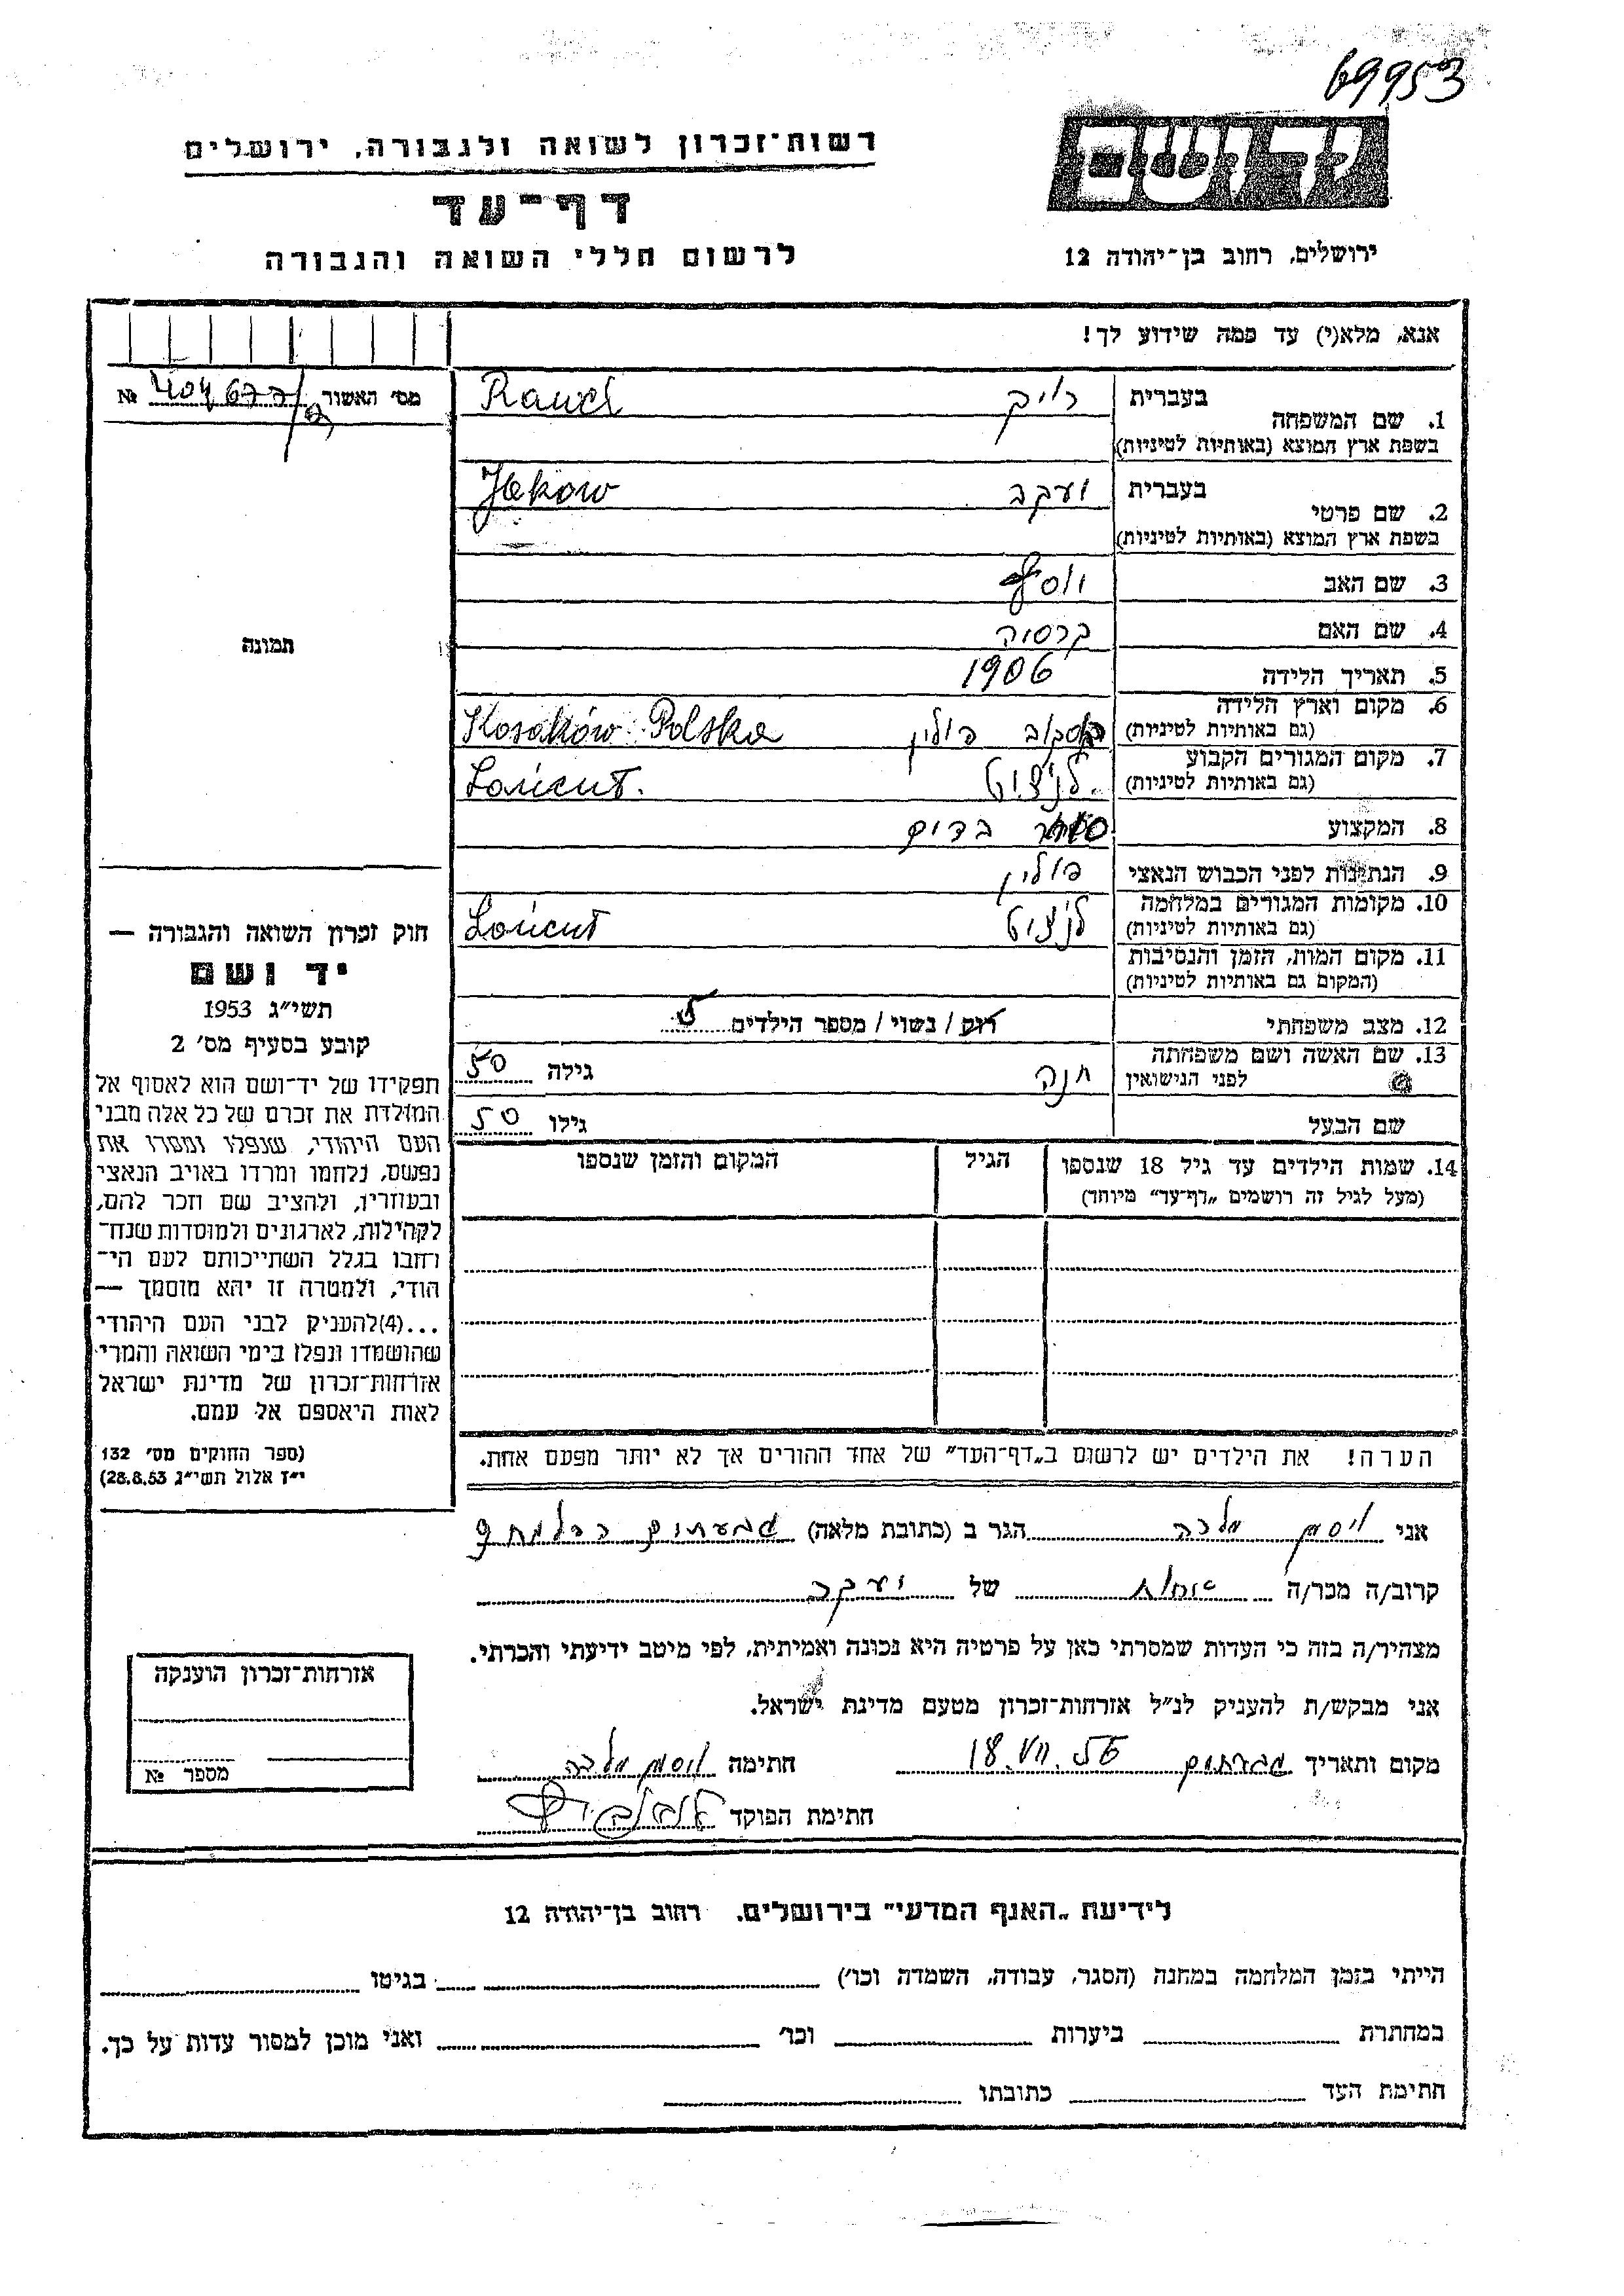 69953
יד ושם
רשות־זכרון לשואה ולגבורה, ירושלים
דף־עד
לרשום חללי השואה והגבורה
ירושלים, רחוב בן־יהודה 12
אנא, מלא(י) עד כמה שידוע לך!
מס׳ האשור №
1. שם המשפחה
בעברית
בשפת ארץ המוצא (באותיות לטיניות)
2. שם פרטי
בעברית יעקב
בשפת ארץ המוצא (באותיות לטיניות) Jakow
3. שם האב יוסף
4. שם האם
5. תאריך הלידה 1906
6. מקום וארץ הלידה
(גם באותיות לטיניות) פולין Kosaków Polska
7. מקום המגורים הקבוע
(גם באותיות לטיניות) לנצוט Lańcut.
8. המקצוע סוחר בדים
9. הנתינות לפני הכבוש הנאצי פולין
10. מקומות המגורים במלחמה
(גם באותיות לטיניות) לנצוט Lańcut
11. מקום המות, הזמן והנסיבות
(המקום גם באותיות לטיניות)
12. מצב משפחתי רוק / נשוי / מספר הילדים
13. שם האשה ושם משפחתה
לפני הנישואין חנה גילה 50
שם הבעל גילו 50
14. שמות הילדים עד גיל 18 שנספו
(מעל לגיל זה רושמים „דף־עד” מיוחד)
הגיל
המקום והזמן שנספו
הערה! את הילדים יש לרשום ב„דף־העד” של אחד ההורים אך לא יותר מפעם אחת.
תמונה
חוק זכרון השואה והגבורה —
יד ושם
תשי״ג 1953
קובע בסעיף מס׳ 2
תפקידו של יד־ושם הוא לאסוף אל
המולדת את זכרם של כל אלה מבני
העם היהודי, שנפלו ומסרו את
נפשם, נלחמו ומרדו באויב הנאצי
ובעוזריו, ולהציב שם וזכר להם,
לקהילות, לארגונים ולמוסדות שנח־
רחבו בגלל השתייכותם לעם הי־
הודי, ולמטרה זו יהא מוסמך —
...(4)להעניק לבני העם היהודי
שהושמדו ונפלו בימי השואה והמרי
אזרחות־זכרון של מדינת ישראל
לאות היאספם אל עמם.
(ספר החוקים מס׳ 132
י״ז אלול תשי״ג 28.8.53)
אני ויסמן מלכה הגר ב (כתובת מלאה) גבעתים
קרוב/ה מכר/ה אחות של יעקב
מצהיר/ה בזה כי העדות שמסרתי כאן על פרטיה היא נכונה ואמיתית, לפי מיטב ידיעתי והכרתי.
אני מבקש/ת להעניק לנ״ל אזרחות־זכרון מטעם מדינת ישראל.
מקום ותאריך גבעתים חתימה ויסמן מלכה
חתימת הפוקד
אזרחות־זכרון הוענקה
מספר №
לידיעת „האגף המדעי” בירושלים. רחוב בן־יהודה 12
הייתי בזמן המלחמה במחנה (הסגר, עבודה, השמדה וכו׳) בגיטו
במחתרת ביערות וכו׳ ואני מוכן למסור עדות על כך.
חתימת העד כתובתו